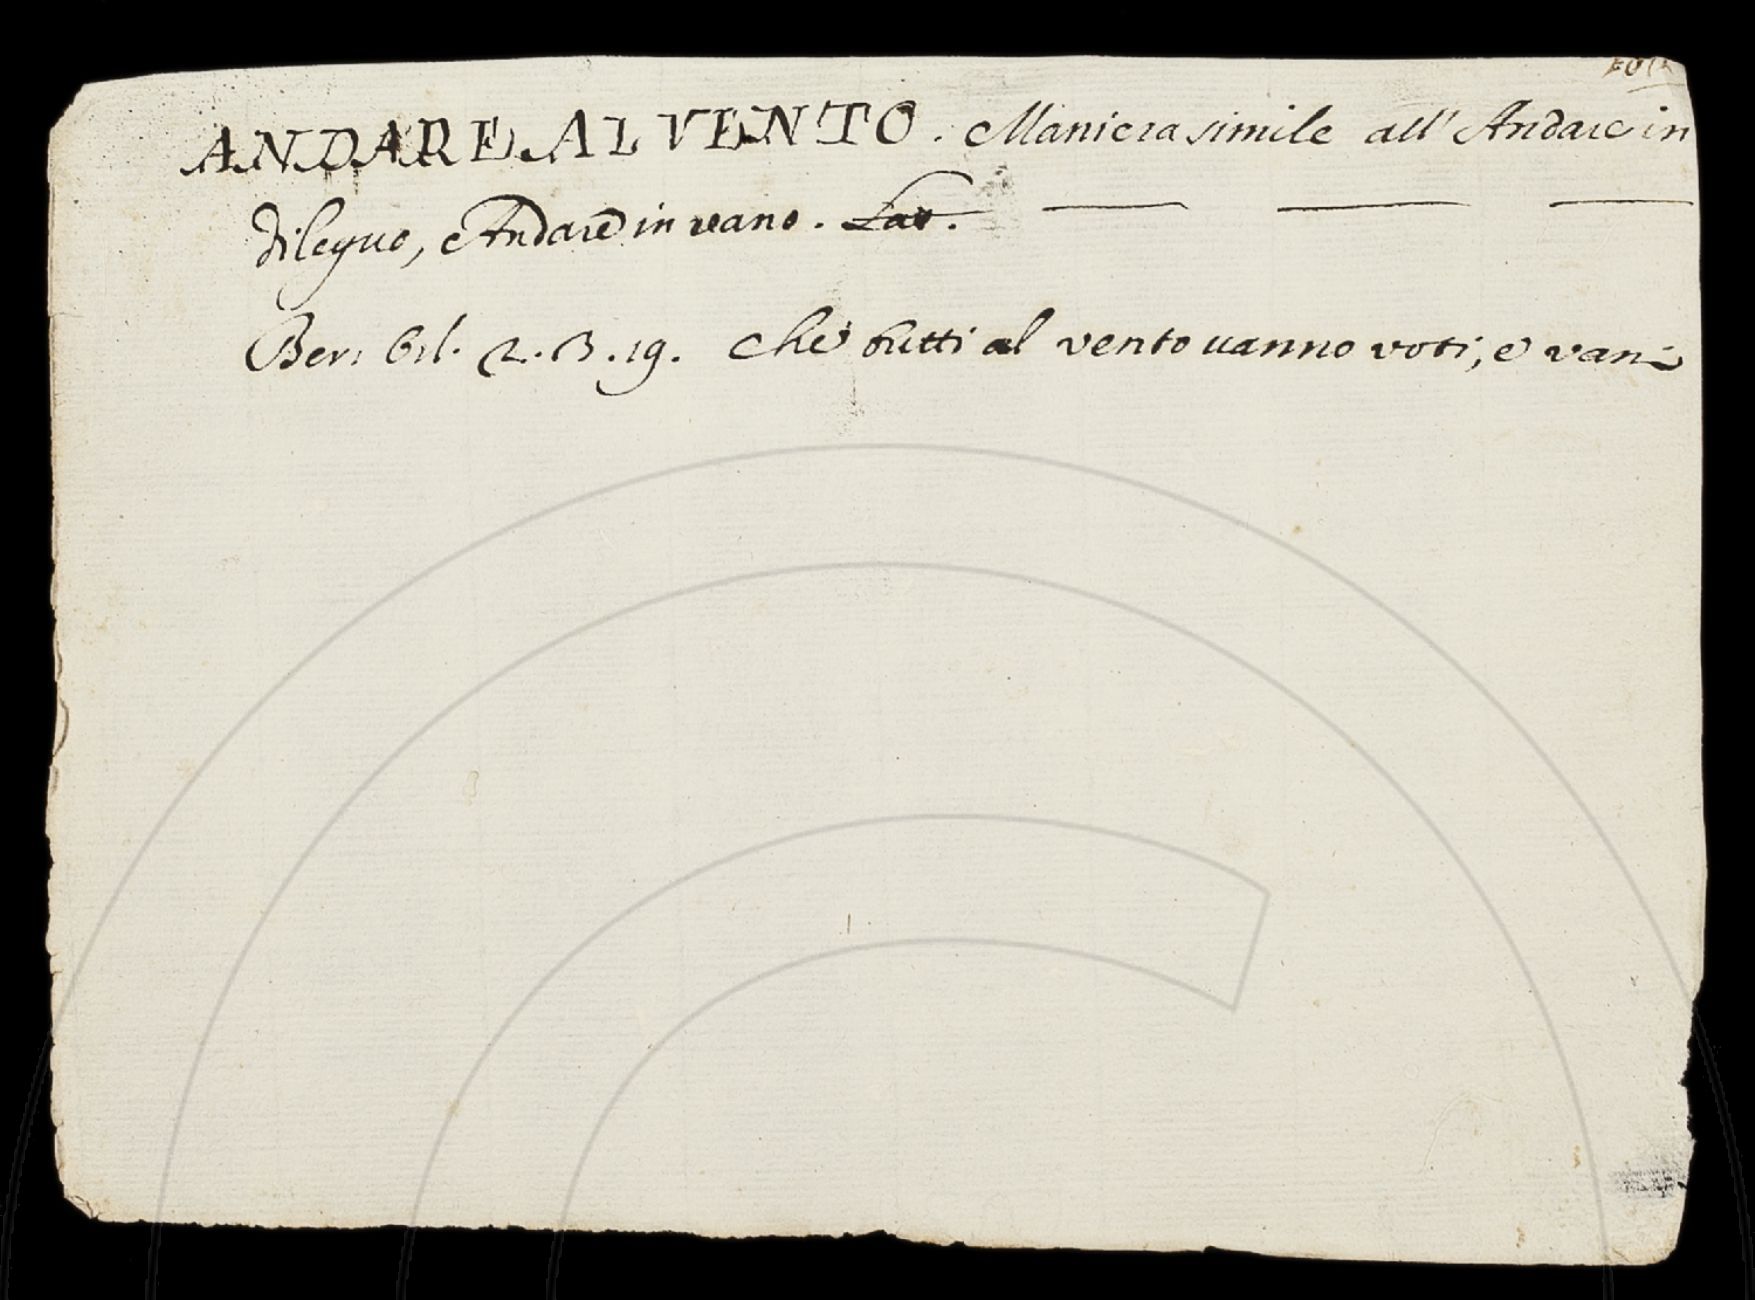 ANDARE AL VENTO. Maniera simile all'Andare in
dileguo, Andare in vano. Lat.
Ber. Orl. 2. 13. 19. Che tutti al vento uanno voti, e vani